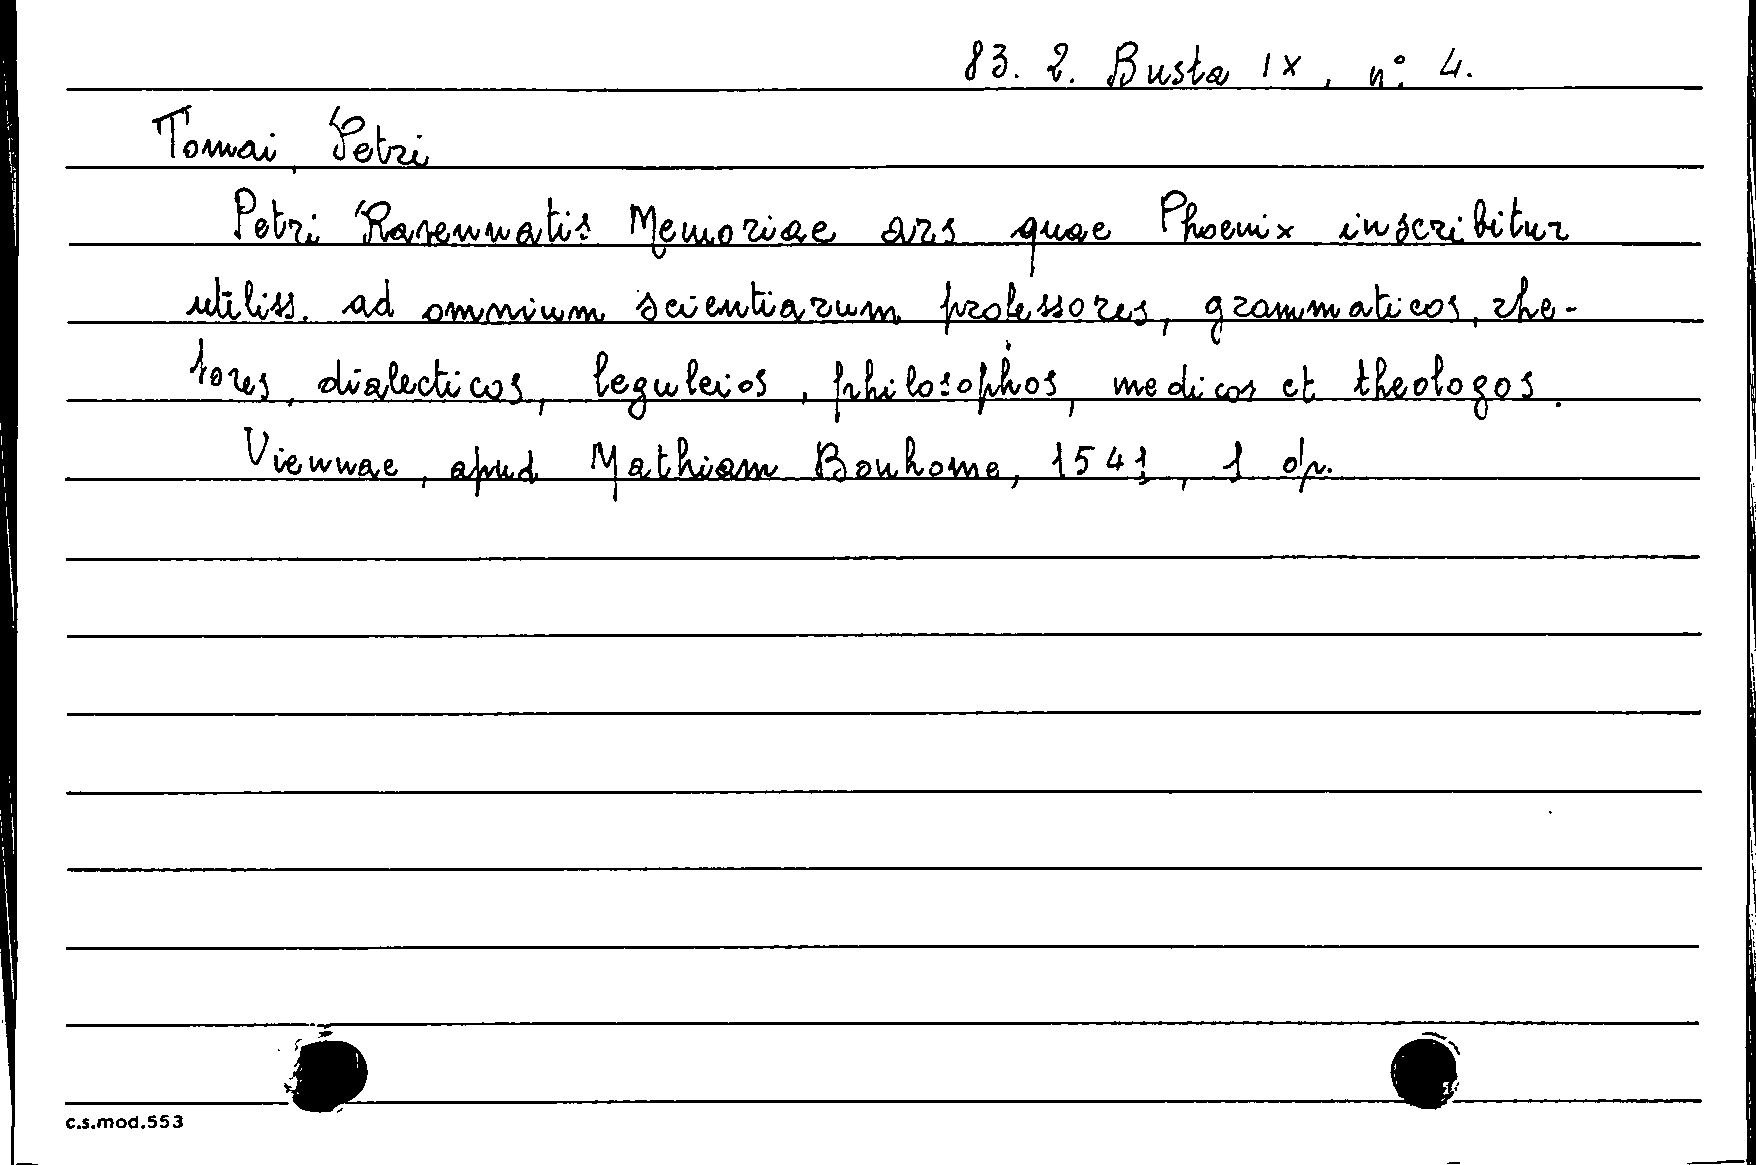 83. 2. Busta IX, n° 4.
Tomai, Petri
Petri Ravennatis Memoriae ars quae Phoenix inscribitur
utiliss. ad omnium scientiarum professores, grammaticos, rhe-
tores, dialecticos, leguleios, philosophos, medicos et theologos.
Viennae, apud Mathiam Bonhome, 1541, 1 op.
c.s.mod.553